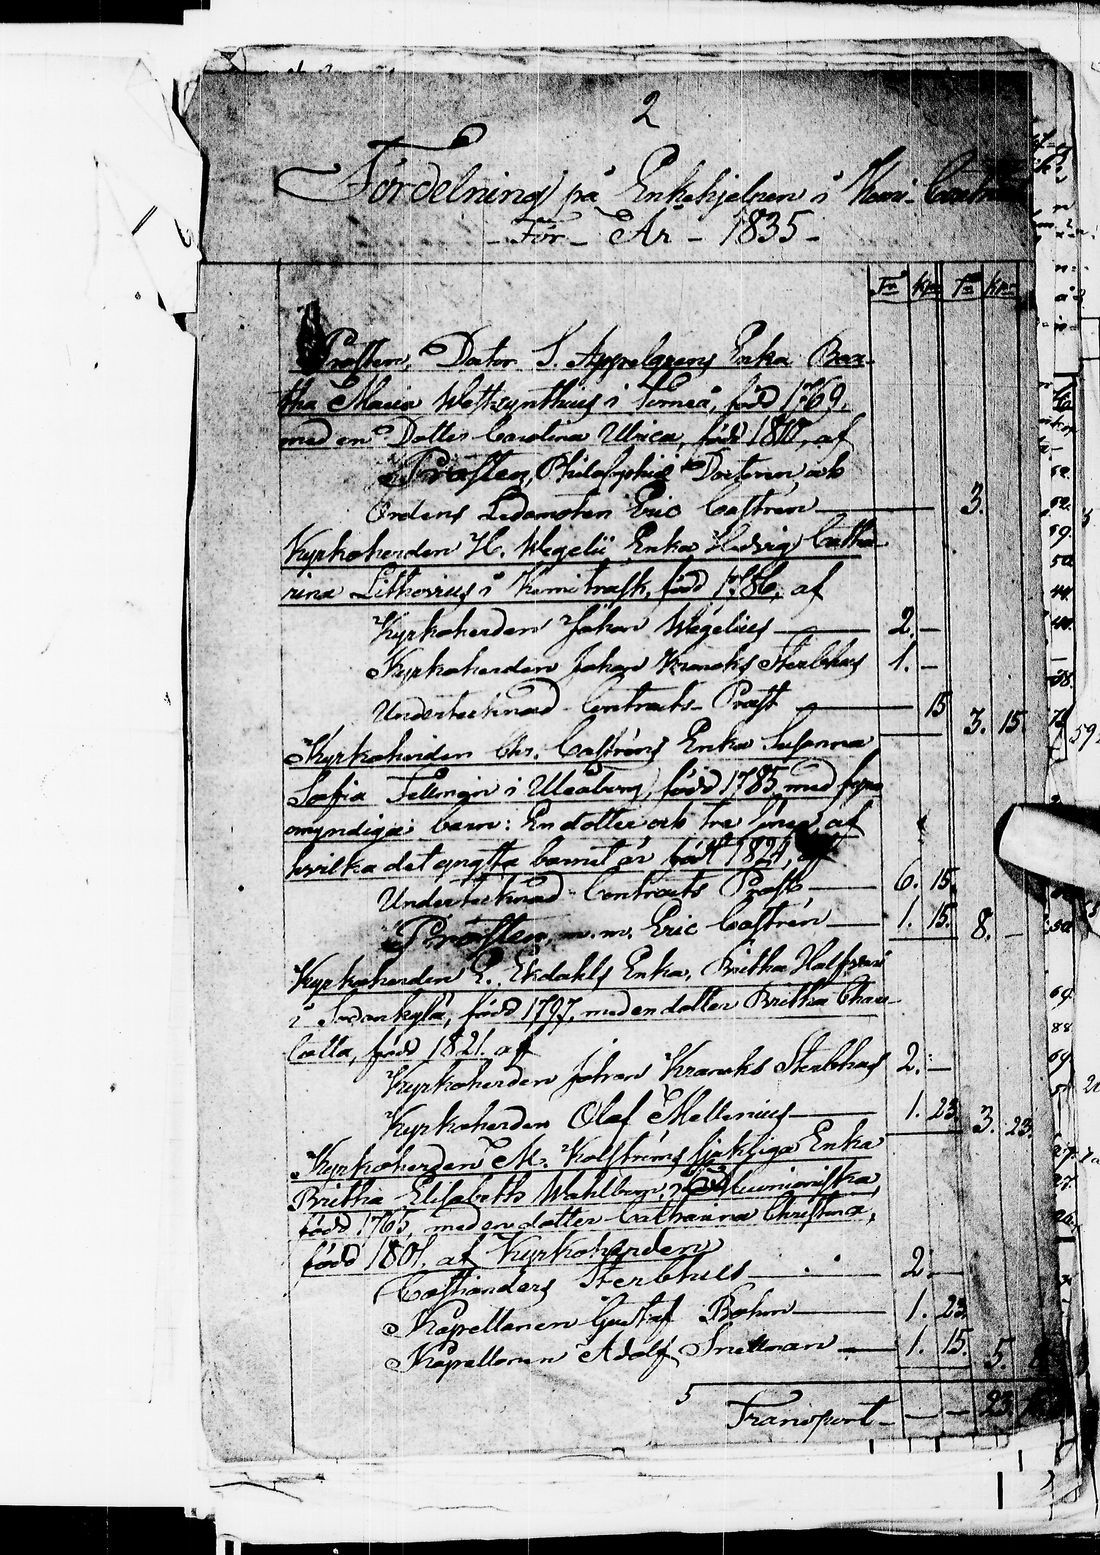 2
Fördelning på Enkehjelpen i Kemi
För År 1835
Kpr Kpr
Prosten, Doctor S. Appelgrens Enka Bar-
tha Maria Westzynthius i Torneå, född 1769,
med en Dotter Carolina Ulrica, född 1810, af
Prosten, Philosophie Doctoren och
Ordens Ledamoten Eric Castrén 3.
Kyrkoherden H. Wegelii Enka Hedvig Catha-
rina Lithovius i Kemiträsk, född 1786, af
Kyrkoherden Johan Wegelius 2. –
Kyrkoherden Johan Kranks Sterbhus 1. –
Undertecknad Contracts Prost 15 3. 15.
Kyrkoherden Chr. Castréns Enka Susanna
Sofia Fellman i Uleåborg, född 1785 med fyra
omyndiga barn: En dotter och tre söner, af
hvilka det yngsta barnet är född 1824, af
Undertecknad Contracts Prost 6. 15.
Prosten, m. m. Eric Castrén 1. 15. 8. –
Kyrkoherden E. Ekdahls Enka, Britha
i Sodankylä, född 1797, med en dotter Britha Char-
lotta, född 1821. af
Kyrkoherden Johan Kranks Sterbhus 2. –
Kyrkoherden Olof Mellenius 1. 23. 3. 23.
Kyrkoherden M. Kolströms sjukliga Enka
Britha Elisabeth Wahlberg, i
född 1765, med en dotter Catharina Christina,
född 1801. af Kyrkoherden
Castranders Sterbhus 2. –
Kapellanen Gustaf Bohm 1. 23.
Kapellanen Adolf Snellman 1. 15. 5.
5
Transport – – 23